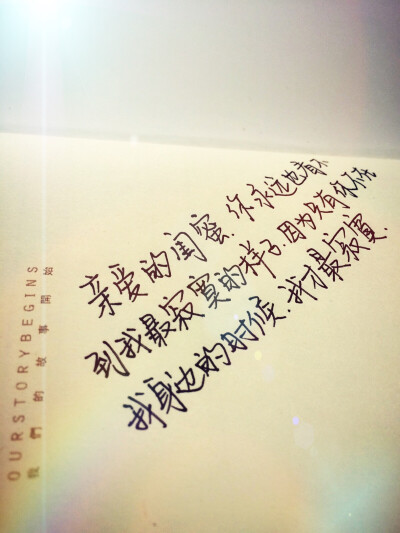 亲爱的闺蜜.你永远也看不
到我最寂寞的样子.因为只有你不在
我身边的时候.我才最寂寞.
OURSTORYBEGINS
我們的故事開始